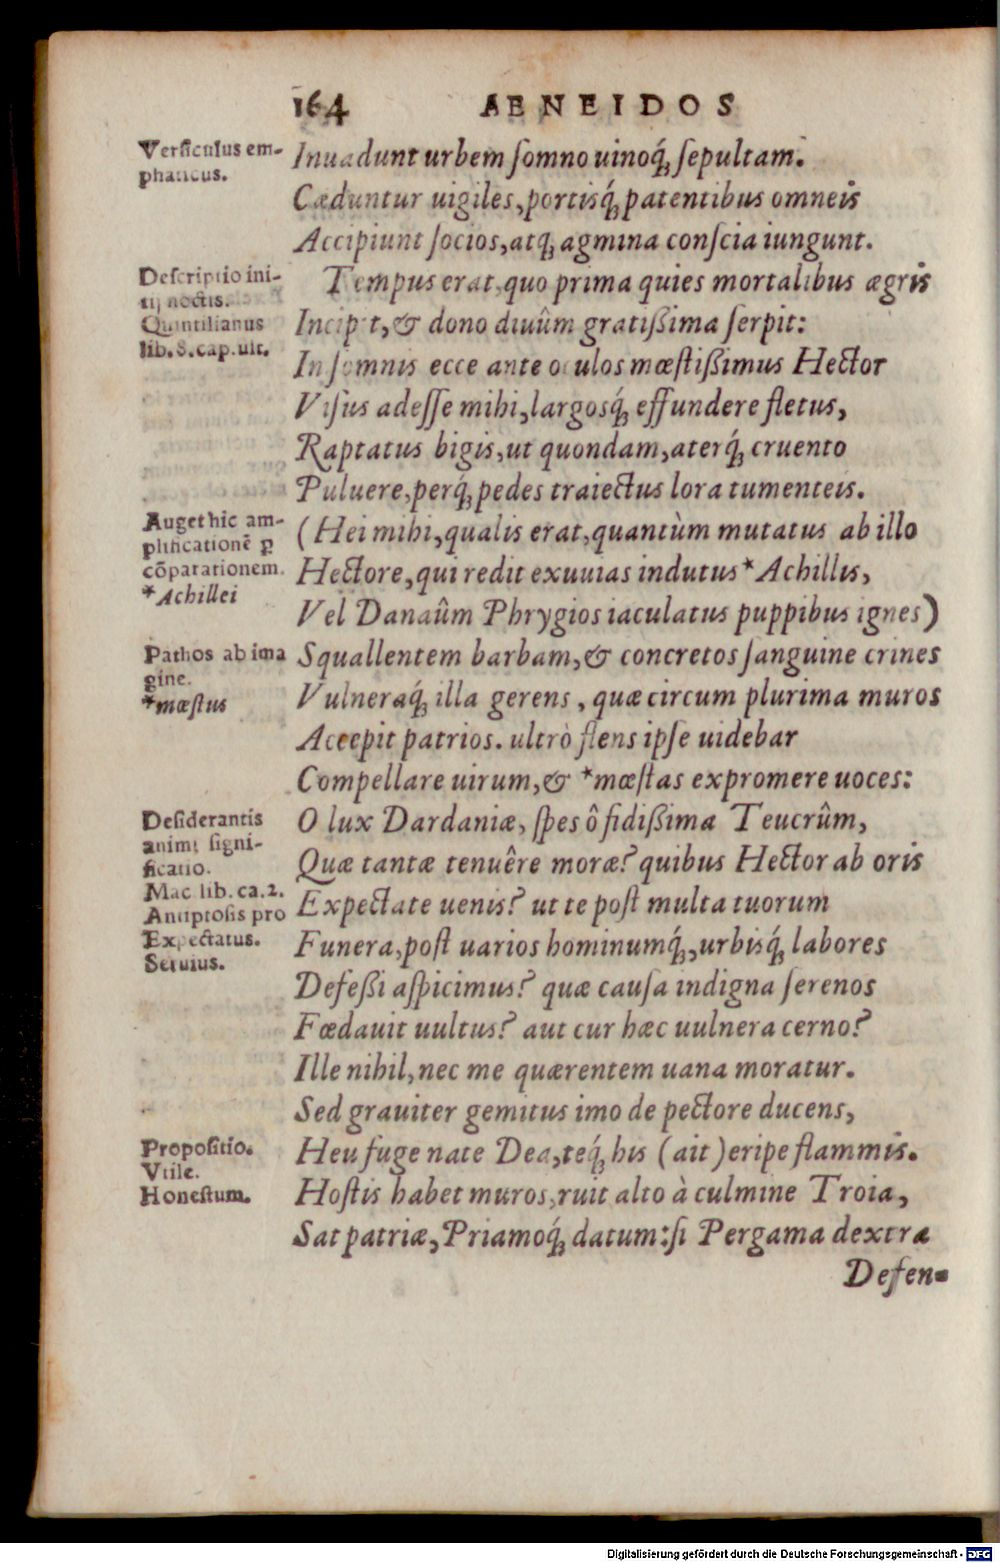 164 AENEIDOS
Verſiculus em-
phaticus.
Inuadunt urbem ſomno uinoq́; ſepultam.
Cæduntur uigiles, portisq́; patentibus omneis
Accipiunt ſocios, atq; agmina conſcia iungunt.
Deſcriptio ini-
tij noctis.
Quintilianus
lib. 8. cap. ult.
Tempus erat, quo prima quies mortalibus ægris
Incipit, & dono diuûm gratißima ſerpit:
In ſomnis ecce ante oculos mœſtißimus Hector
Viſus adeſſe mihi, largosq́; effundere fletus,
Raptatus bigis, ut quondam, aterq́; cruento
Puluere, perq́; pedes traiectus lora tumenteis.
Auget hic am-
plificationē ꝑ
cōparationem.
*Achillei
(Hei mihi, qualis erat, quantùm mutatus ab illo
Hectore, qui redit exuuias indutus *Achillis,
Vel Danaûm Phrygios iaculatus puppibus ignes)
Pathos ab ima
gine.
*mœſtus
Squallentem barbam, & concretos ſanguine crines
Vulneraq́; illa gerens, quæ circum plurima muros
Accepit patrios. ultrò flens ipſe uidebar
Compellare uirum, & *mœſtas expromere uoces:
Deſiderantis
animi ſigni-
ficatio.
Mac lib. ca. 2.
Antiptoſis pro
Expectatus.
Seruius.
O lux Dardaniæ, ſpes ô fidißima Teucrûm,
Quæ tantæ tenuêre moræ? quibus Hector ab oris
Expectate uenis? ut te poſt multa tuorum
Funera, poſt uarios hominumq́;, urbisq́; labores
Defeßi aſpicimus? quæ cauſa indigna ſerenos
Fœdauit uultus? aut cur hæc uulnera cerno?
Ille nihil, nec me quærentem uana moratur.
Sed grauiter gemitus imo de pectore ducens,
Propoſitio.
Vtile.
Honeſtum.
Heu fuge nate Dea, teq́; his (ait) eripe flammis.
Hoſtis habet muros, ruit alto à culmine Troia,
Sat patriæ, Priamoq́; datum: ſi Pergama dextra
Defen-
Digitalisierung gefördert durch die Deutsche Forschungsgemeinschaft - DFG